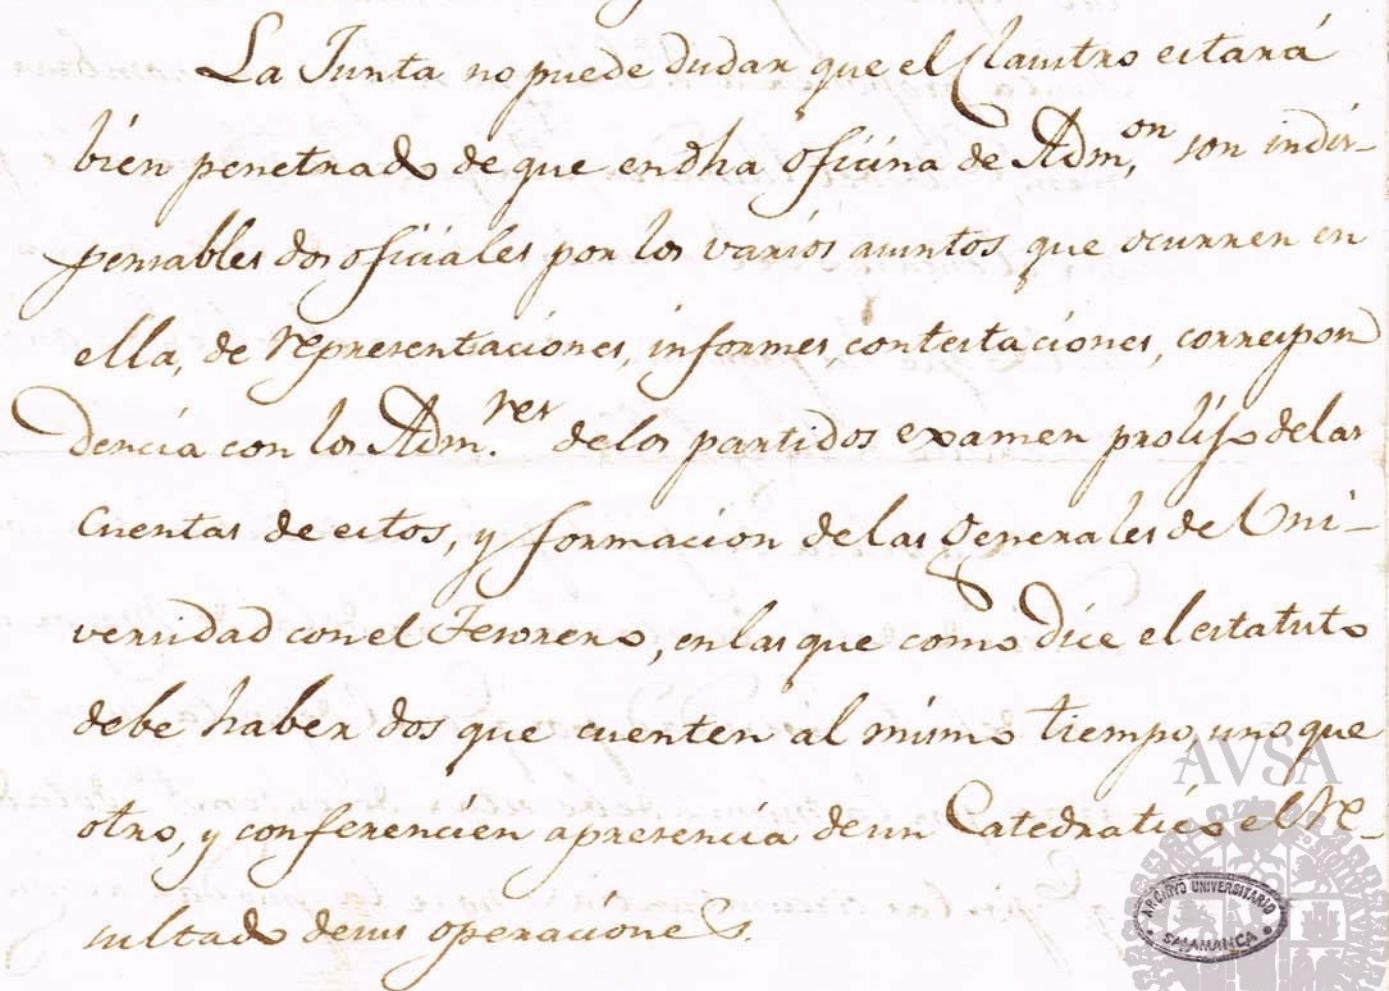 La Junta no puede dudar que el Claustro estará
bien penetrado de que en dha oficina de Adm,on son indis-
pensables dos oficiales por los varios asuntos que ocurren en
ella, de representaciones, informes, contestaciones, correspon
dencia con los Adm.res de los partidos examen prolijo de las
Cuentas de estos, y formacion de las generales de Uni-
versidad con el Tesorero, en las que como dice el estatuto
debe haber dos que cuenten al mismo tiempo, uno que
otro, y conferencien a presencia de un Catedratico el re-
sultado de sus operaciones.
AVSA
ARCHIVO UNIVERSITARIO
SALAMANCA